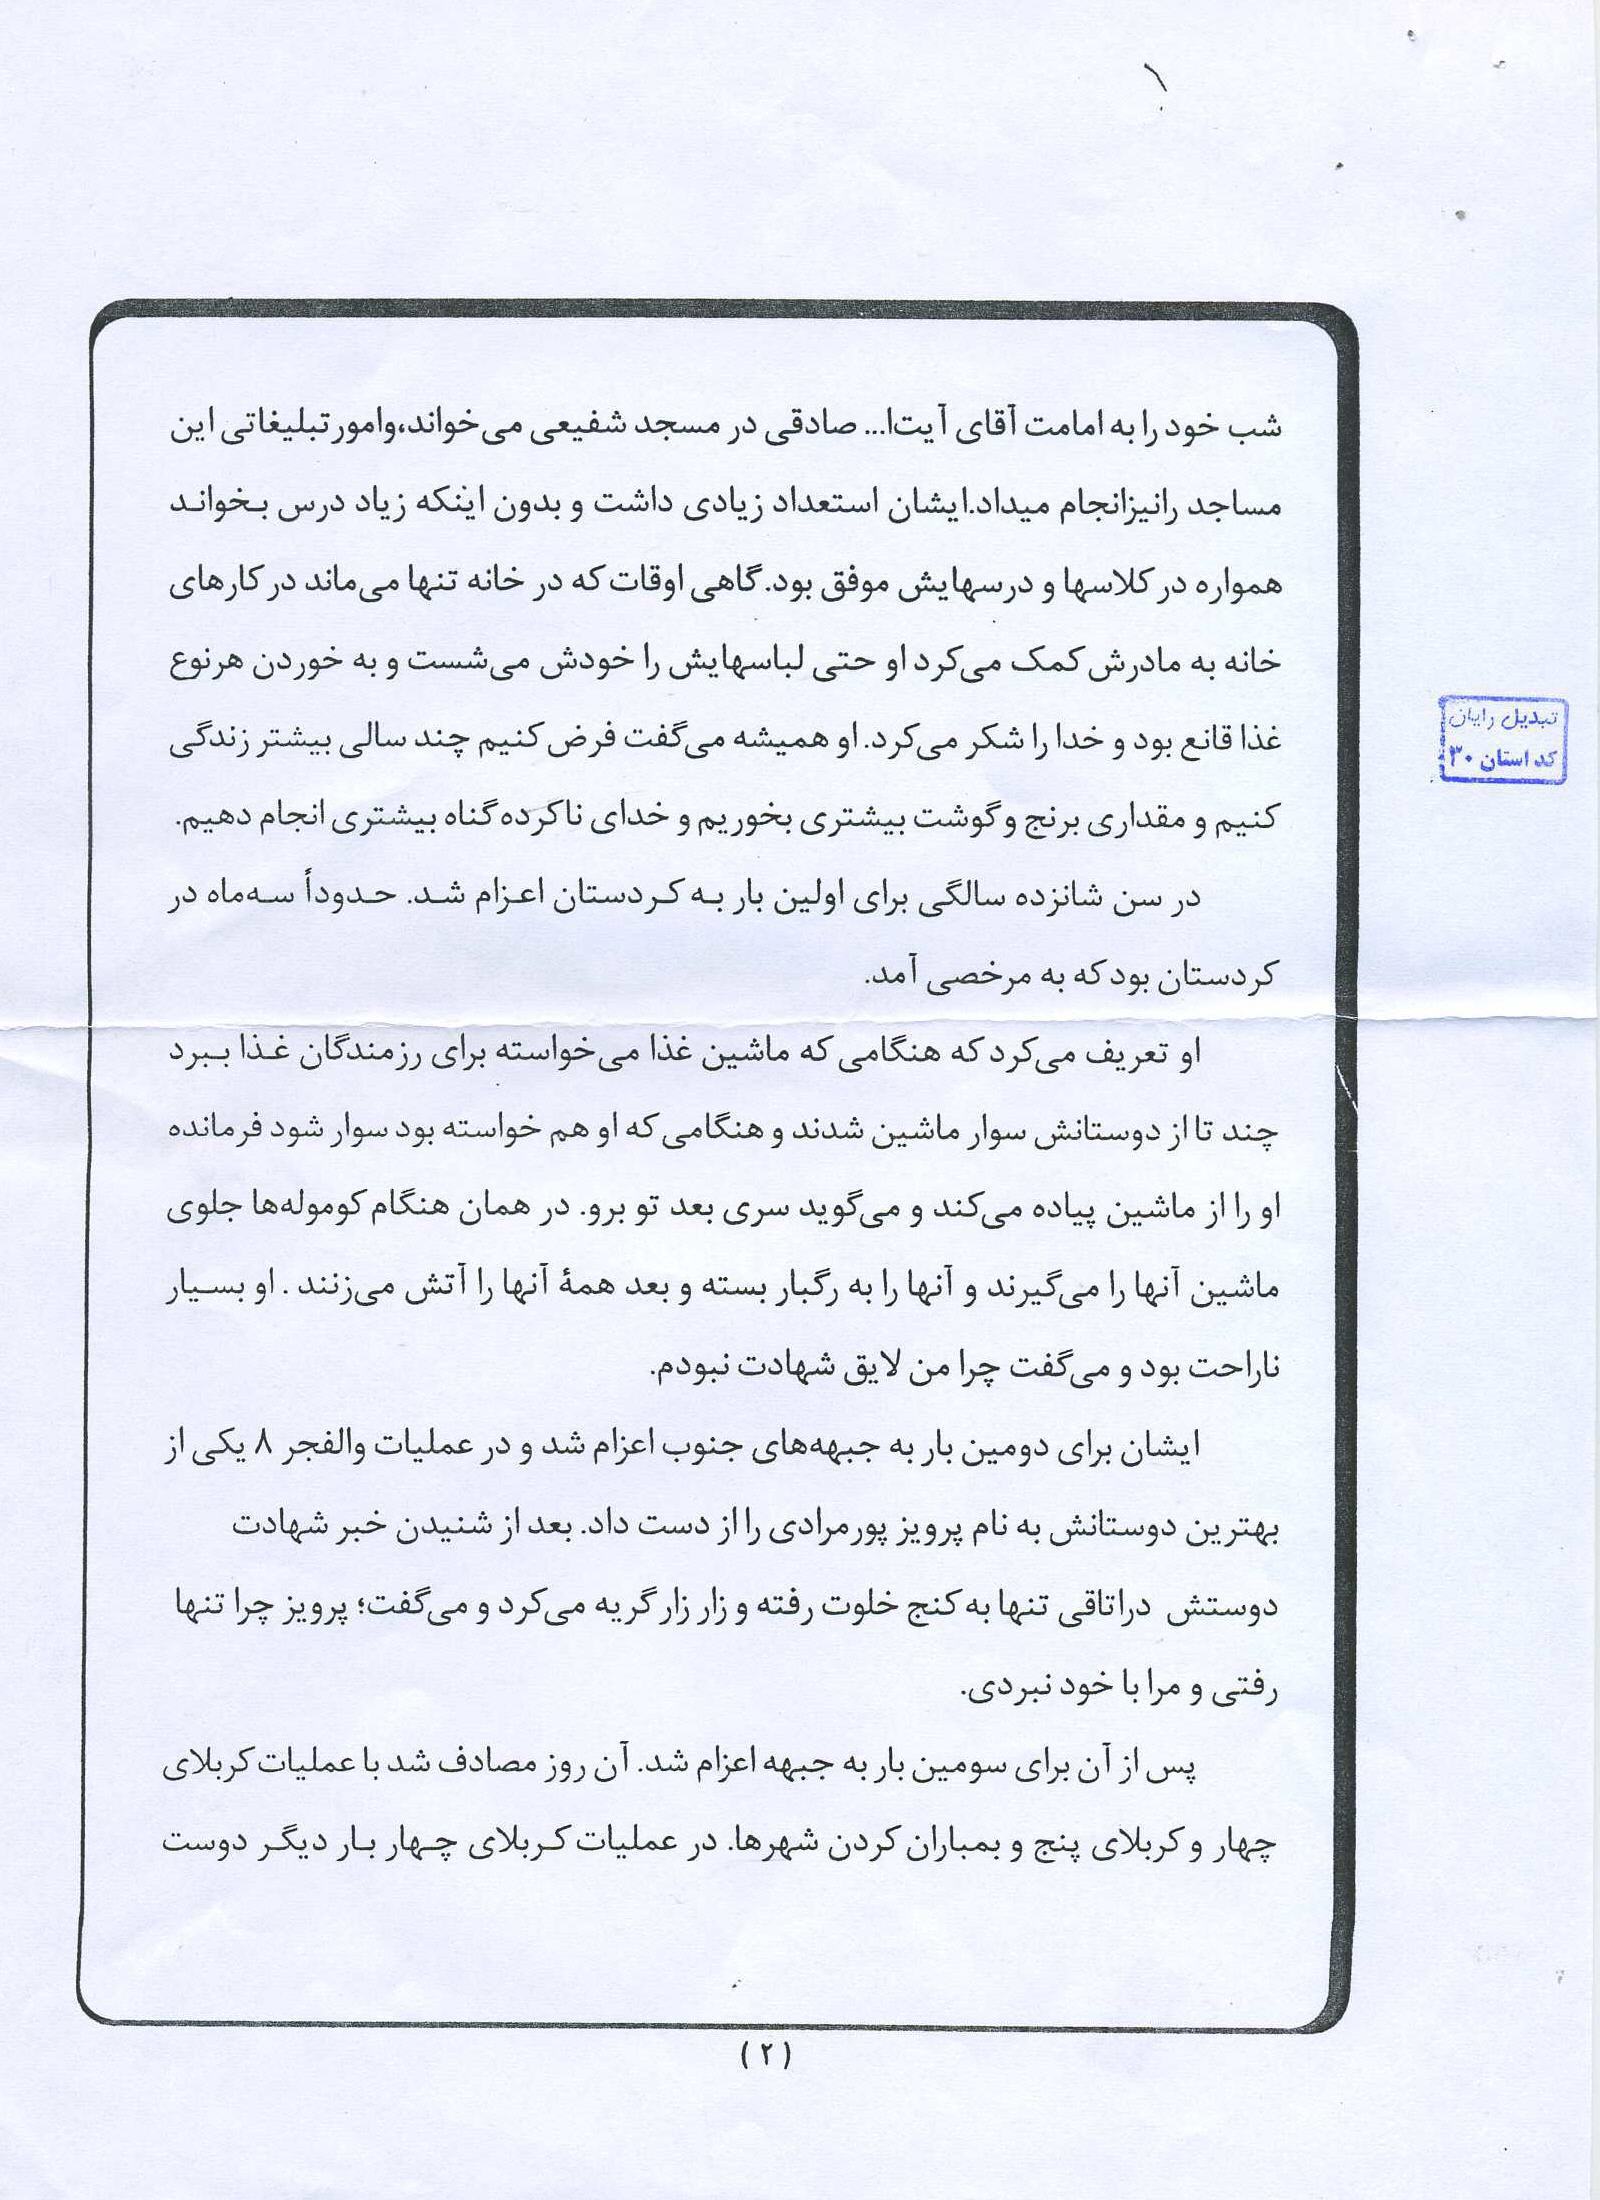 شب خود را به امامت آقای آیت‌ا... صادقی در مسجد شفیعی می‌خواند،وامور تبلیغاتی این
مساجد رانیزانجام میداد.ایشان استعداد زیادی داشت و بدون اینکه زیاد درس بخواند
همواره در کلاسها و درسهایش موفق بود. گاهی اوقات که در خانه تنها می‌ماند در کارهای
خانه به مادرش کمک می‌کرد او حتی لباسهایش را خودش می‌شست و به خوردن هرنوع
غذا قانع بود و خدا را شکر می‌کرد. او همیشه می‌گفت فرض کنیم چند سالی بیشتر زندگی
کنیم و مقداری برنج و گوشت بیشتری بخوریم و خدای ناکرده گناه بیشتری انجام دهیم.
در سن شانزده سالگی برای اولین بار به کردستان اعزام شد. حدوداً سه‌ماه در
کردستان بود که به مرخصی آمد.
او تعریف می‌کرد که هنگامی که ماشین غذا می‌خواسته برای رزمندگان غذا ببرد
چند تا از دوستانش سوار ماشین شدند و هنگامی که او هم خواسته بود سوار شود فرمانده
او را از ماشین پیاده می‌کند و می‌گوید سری بعد تو برو. در همان هنگام کوموله‌ها جلوی
ماشین آنها را می‌گیرند و آنها را به رگبار بسته و بعد همهٔ آنها را آتش می‌زنند . او بسیار
ناراحت بود و می‌گفت چرا من لایق شهادت نبودم.
ایشان برای دومین بار به جبهه‌های جنوب اعزام شد و در عملیات والفجر ۸ یکی از
بهترین دوستانش به نام پرویز پورمرادی را از دست داد. بعد از شنیدن خبر شهادت
دوستش دراتاقی تنها به کنج خلوت رفته و زار زار گریه می‌کرد و می‌گفت؛ پرویز چرا تنها
رفتی و مرا با خود نبردی.
پس از آن برای سومین بار به جبهه اعزام شد. آن روز مصادف شد با عملیات کربلای
چهار و کربلای پنج و بمباران کردن شهرها. در عملیات کربلای چهار بار دیگر دوست
(۲)
تبدیل رایان
کد استان ۳۰